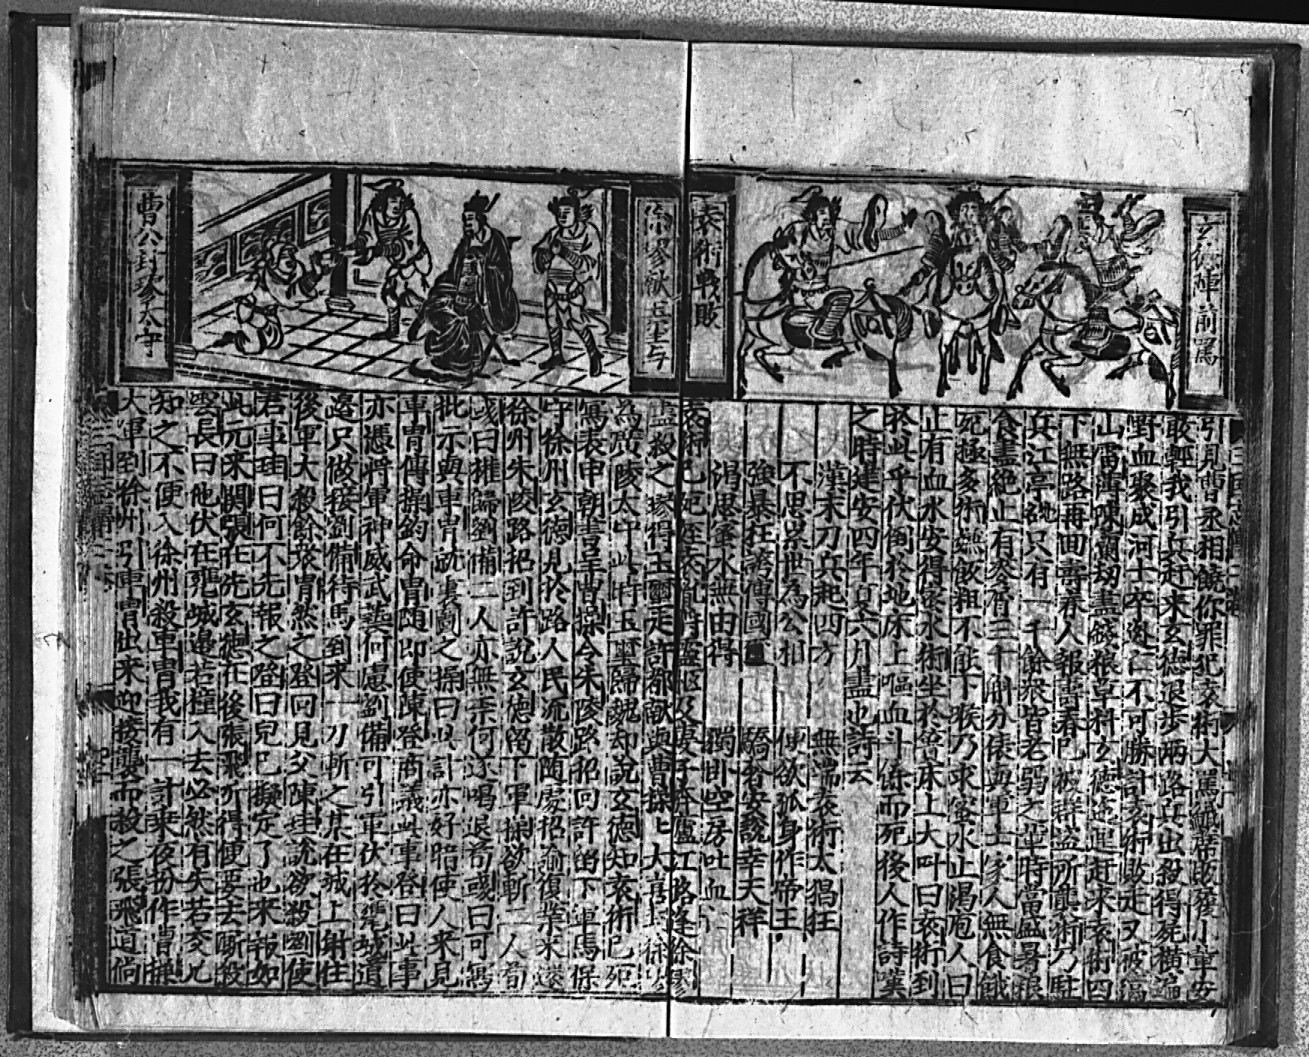 玄德陣前罵
袁術戰敗
引見曹丞相饒你罪犯袁術大罵織蓆販屨小輩安
敢輕我引兵赶來玄德退步兩路兵出殺得死橫遍
野血聚成河士卒逃亡不可勝計袁術敗走又被
山雷薄陳蘭劫盡錢粮草料玄德赶來袁術四
下無路再回壽春人報壽春已被群盗所術乃駐
兵江亭只有一千餘衆皆老弱之輩時當盛暑粮
食盡絶止有麥三十斛分俵與軍士家人無食餓
死極多術嫌飯粗不能下喉乃求蜜水止渴庖人曰
止有血水安得蜜水術坐於床上大叫曰袁術到
於此乎伏倒於地床上嘔血斗餘而死後人作詩嘆
之時建安四年夏六月盡也詩云
漢末刀兵起四方 無端袁術太猖狂
不思累世為公相 便欲孤身作帝王
強暴狂誇傳國璽 驕奢妄說幸天祥
渴思蜜水無由得 獨卧空房吐血
袁術已死侄袁胤將靈柩及妻子奔廬江路逢徐璆
徐璆獻玉璽与
曹公封璆太守
盡殺之璆得玉璽走許都獻與曹操上大喜封徐
為廣陵太守此時玉璽歸魏却說玄德知袁術已死
寫表申朝書呈曹操令朱陵路招回許留下軍馬保
守徐州玄德見於路人民流散随處招諭復業朱
徐州朱陵路招到許說玄德留下軍操欲斬二人荀
或曰權歸劉備二人亦無奈何遂喝退荀或曰可寫
批示與車冑就裏圖之操曰此計亦好暗使人來見
車冑傳操鈞命冑随即使陳登商議此事登曰此事
亦憑將軍神威武藝何慮劉備可引軍伏於甕城邊
邊只做接劉備待馬到來一刀斬之某在城上射住
後軍大殺餘衆冑然之登回見父陳珪說欲殺劉使
君事珪曰何不先報之登曰兒已擬定了也來報如
此元來關張在先玄德在後張飛亦得便要去厮殺
雲長曰他伏在甕城邊若撞入去必然有失若交兄
知之不便入徐州殺車冑我有一計來夜扮作曹操
大軍到徐州引車冑出來迎接襲而殺之張飛道倘